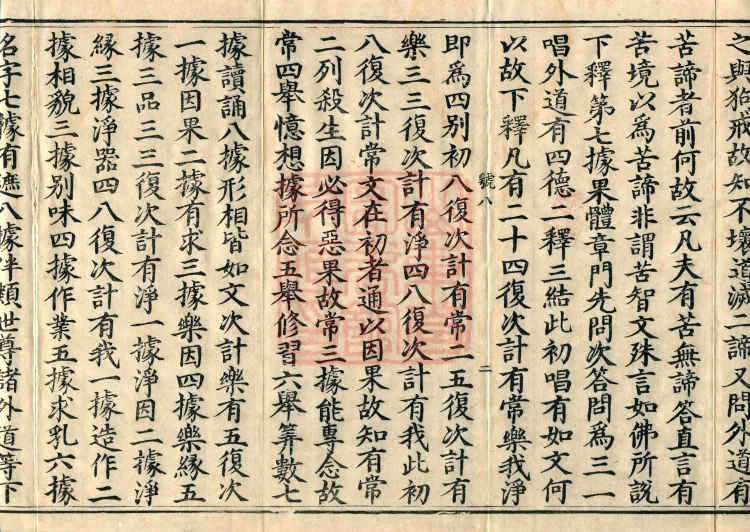 之與狗戒故知不壞道滅二諦又問外道有
苦諦者前何故云凡夫有苦無諦答直言有
苦境以為苦諦非謂苦智文殊言如佛所說
下釋第七據果體章門先問次答問為三一
唱外道有四德二釋三結此初唱有如文何
以故下釋凡有二十四復次計有常樂我淨
號八 二
即為四別初八復次計有常二五復次計有
樂三三復次計有淨四八復次計有我此初
八復次計常文在初者通以因果故知有常
二列殺生因必得惡果故常三據能專念故
常四舉憶想據所念五舉修習六舉筭數七
據讀誦八據形相皆如文次計樂有五復次
一據因果二據有求三據樂因四據樂緣五
據三品三三復次計有淨一據淨因二據淨
緣三據淨器四八復次計有我一據造作二
據相貌三據別味四據作業五據求乳六據
名字七據有遮八據伴類世尊諸外道等下